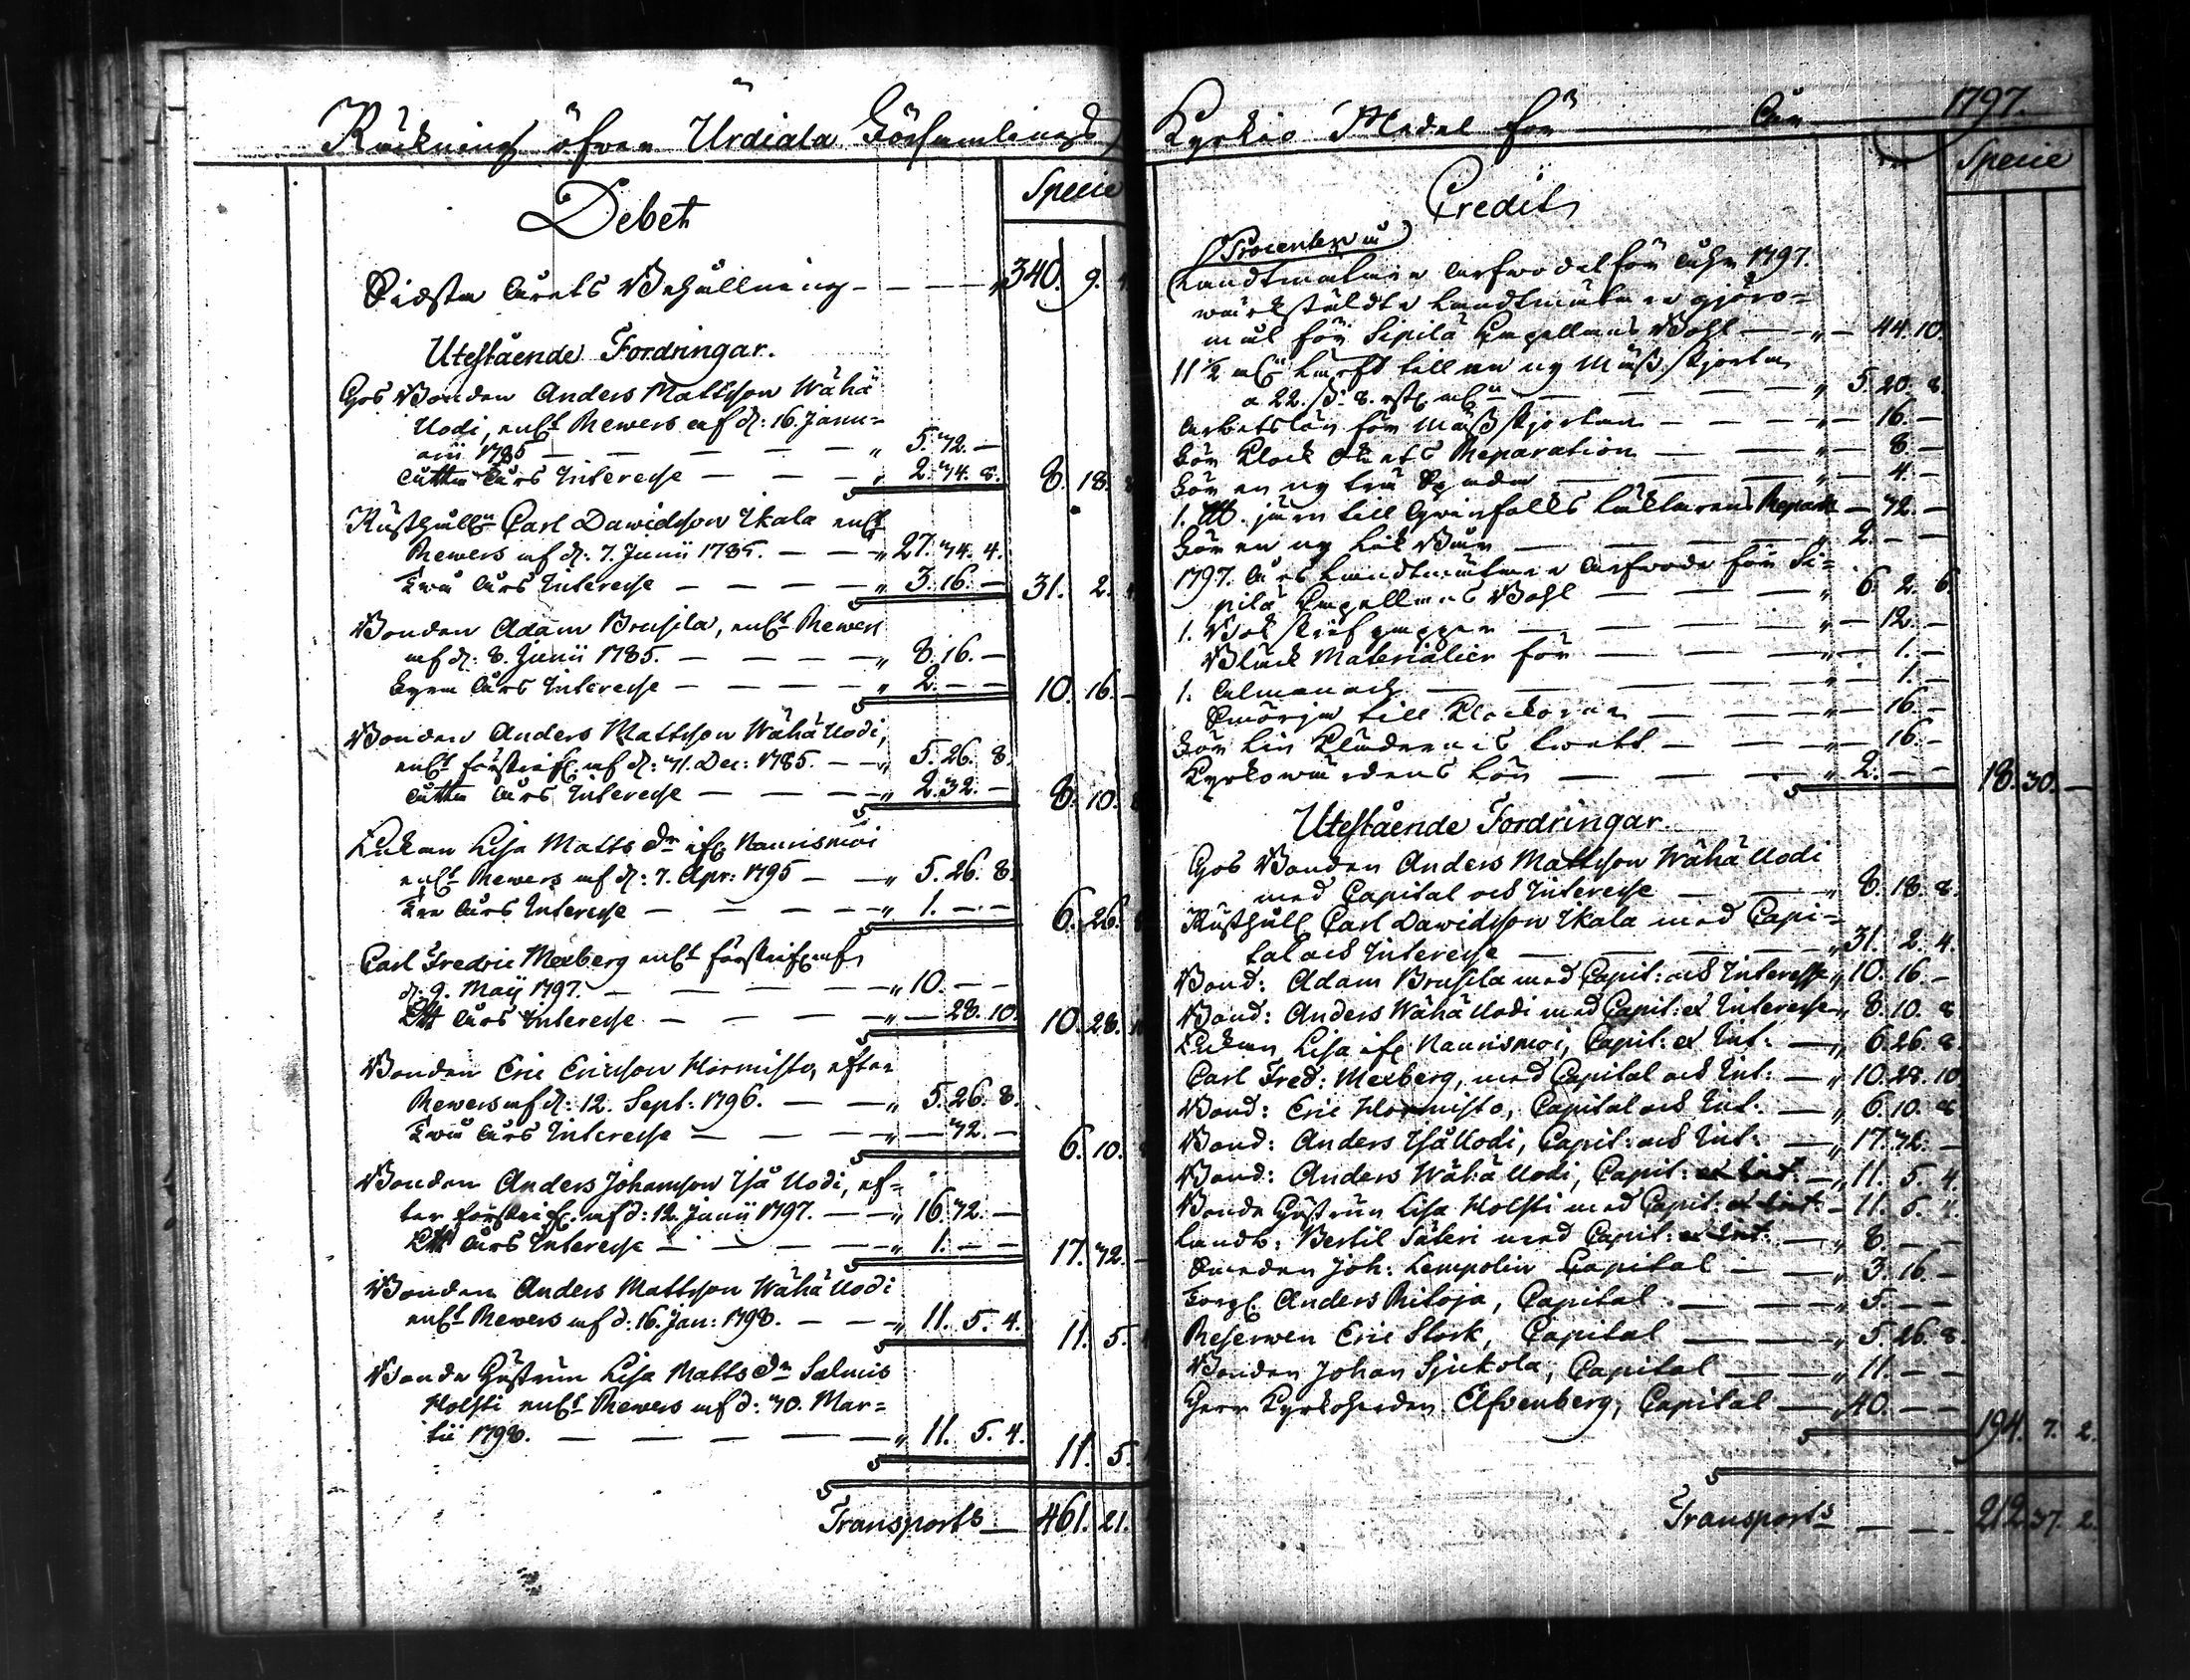 Räkning öfver Urdiala Församlings
Debet
Specie
Sidsta årets Behållning — — — " 340. 9.
Utestående Fordringar.
Hos Bonden Anders Mattsson Wähä
Uodi, enl:t Revers af d: 16. Janu=
arii 1785 — — — — — " 5. 42. —
åtta års Interesse — — — " 2. 44. 8. 8. 18.
Rusthåll:n Carl Davidsson Ikala enl:t
Revers af d: 7. Junii 1785. — — " 27. 34. 4.
Två års Interesse — — — — " 3. 16. — 31. 2.
Bonden Adam Brusila, enl:t Revers
af d: 8. Junii 1785. — — — — " 8. 16. —
Fyra års Interesse — — — — " 2. — — 10. 16. —
Bonden Anders Mattsson Wähä Uodi,
enl:t förskrifn: af d: 31. Dec: 1785. — — " 5. 26. 8.
åtta års Interesse — — — " 2. 32. — 8. 10.
Enkan Lisa Matts d:r ifr: Naurismoi
enl:t Revers af d: 7. Apr: 1795 — — " 5. 26. 8.
Tre års Interesse — — — — " 1. — — 6. 26.
Carl Fredric Mexberg enl:t förskrifn: af
d: 9. Maji 1797. — — — — " 10. — —
Ett års Interesse — — — — " — 28. 10. 10. 28.
Bonden Eric Ericsson Hormisto, efter
Revers af d: 12. Sept: 1796. — — " 5. 26. 8.
Två års Interesse — — — — " — 32. — 6. 10.
Bonden Anders Johansson Iså Uodi, ef=
ter förskrifn: af d: 12. Junii 1797. — — " 16. 32. —
Ett års Interesse — — — — " 1. — — 17. 32. —
Bonden Anders Mattsson Wähä Uodi
enl:t Revers af d: 16. Jan: 1798. — — " 11. 5. 4. 11. 5.
Bonde Hustrun Lisa Matts d:r Salmis
Holsti enl:t Revers af d: 30. Mar=
tii 1798. — — — — — " 11. 5. 4. 11. 5.
Transport — 461. 21.
Kyrkio Medel för — År — 1797.
Credit
Specie
Procenten å
Landtmätare arfvodet för åhr 1797.
värkstäldte Landtmätare gjöro=
mål för Sipilä Capellans Bohl — " — 44. 10.
11 1/2 aln: Lärft till en ny Mäss skjorta
a 22. ß: 8. rst: aln: — — — — " 5. 20. 8.
Arbetslön för Mäss skjortan — — — " — 16. —
För Klock — Reparation — — " — 8. —
För en ny trä Spada — — — — " — 4. —
1. järn till Qvinfolks Läktarens Repar: — 32. —
För en ny Lik Bår — — — — " 2. — —
1797. års Landtmätare Arfvode för Si=
pilä Capellans Bohl — — — — " 6. 2. 6.
1. Bok skrif papper — — — — " — 12. —
Bläck Materialier för — — — — " — 1. —
1. Almanach — — — — " — 1. —
Smörja till Klockorna — — — — " — 16. —
För Lin Klädernes tvätt — — — " — 16. —
Kyrkovärdens Lön — — — — " 2. — — 18. 30. —
Utestående Fordringar
Hos Bonden Anders Mattsson Wähä Uodi
med Capital och Interesse — — " 8. 18. 8.
Rusthåll: Carl Davidsson Ikala med Capi=
tal och Interesse — — — — " 31. 2. 4.
Bond: Adam Brusila med Capit: och Interesse " 10. 16. —
Bond: Anders Wähä Uodi med Capit: et Interesse " 8. 10. 8.
Enkan Lisa ifr: Naurismoi, Capit: et Int: — " 6. 26. 8.
Carl Fred: Mexberg, med Capital och Int: — " 10. 28. 10.
Bond: Eric Hormisto, Capital och Int: — " 6. 10. 8.
Bond: Anders Iså Uodi, Capit: och Int: — " 17. 32. —
Bond: Anders Wähä Uodi, Capit: et Int: — " 11. 5. 4.
Bonde Hustrun Lisa Holsti med Capit: et Int: — 11. 5. 4.
Landb: Bertil Säteri med Capit: et Int: — " 8. — —
Smeden Joh: Lempolin Capital — — " 3. 16. —
Torp: Anders Ritoja, Capital — — — " 5. — —
Reserven Eric Stork, Capital — — " 5. 26. 8.
Bonden Johan Sjukola, Capital — — " 11. — —
Herr Kyrkoherden Elfvenberg, Capital — " 40. — — 194. 7. 2.
Transport — — — 212. 37. 2.